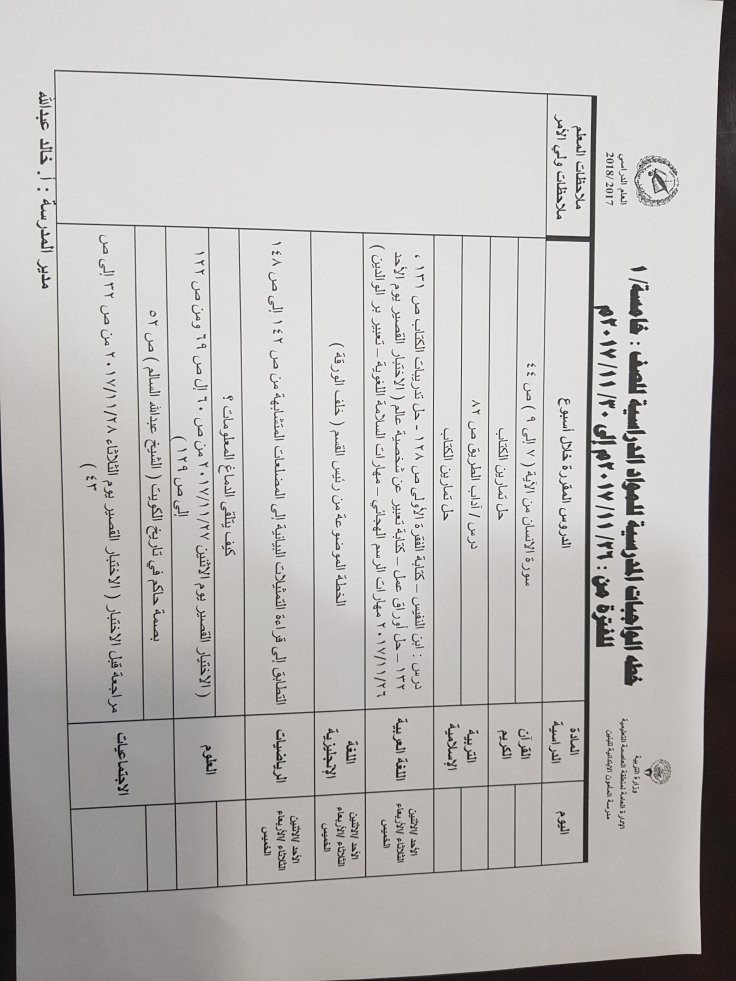 وزارة التربية
الإدارة العامة لمنطقة العاصمة التعليمية
مدرسة المأمون الابتدائية للبنين
العام الدراسي
2018/ 2017
خطه الواجبات المدرسية للمواد الدراسية للصف : خامسة/ ١
للفترة من : ٢٦/ ١١/ ٢٠١٧م إلى ٣٠/ ١١/ ٢٠١٧م
اليوم
المادة الدراسية
الدروس المقررة خلال أسبوع
ملاحظات المعلم
ملاحظات ولي الأمر
القرآن الكريم
سورة الانسان من الآية ( ٧ إلى ٩ ) ص ٤٤
حل تمارين الكتاب
التربية الإسلامية
درس / آداب الطريق ص ٨٢
حل تمارين الكتاب
الأحد /الاثنين
الثلاثاء /الأربعاء
الخميس
اللغة العربية
درس : ابن النفيس – كتابة الفقرة الأولى ص ١٢٨ - حل تدريبات الكتاب ص ١٣١ ،
١٣٢ – حل أوراق عمل – كتابة تعبير عن شخصية عالم ( الاختبار القصير يوم الأحد
٢٠١٧/١١/٢٦ مهارات الرسم الهجائي – مهارات السلامة اللغوية – تعبير بر الوالدين )
الأحد /الاثنين
الثلاثاء /الأربعاء
الخميس
اللغة الإنجليزية
الخطة الموضوعة من رئيس القسم ( خلف الورقة )
الأحد /الاثنين
الثلاثاء /الأربعاء
الخميس
الرياضيات
التطابق إلى قراءة التمثيلات البيانية إلى المضلعات المتشابهة من ص ١٤٢ إلى ص ١٤٨
العلوم
كيف يتلقى الدماغ المعلومات ؟
( الاختبار القصير يوم الاثنين ٢٠١٧/١١/٢٧ من ص ٦٠ إل ص ٦٩ ومن ص ١٢٢
إلى ص ١٢٩ )
الاجتماعيات
بصمة حاكم في تاريخ الكويت ( الشيخ عبدالله السالم ) ص ٥٢
مراجعة قبل الاختبار ( الاختبار القصير يوم الثلاثاء ٢٠١٧/١١/٢٨ من ص ٣٢ إلى ص
٤٣ )
مدير المدرسة : أ. خالد عبدالله